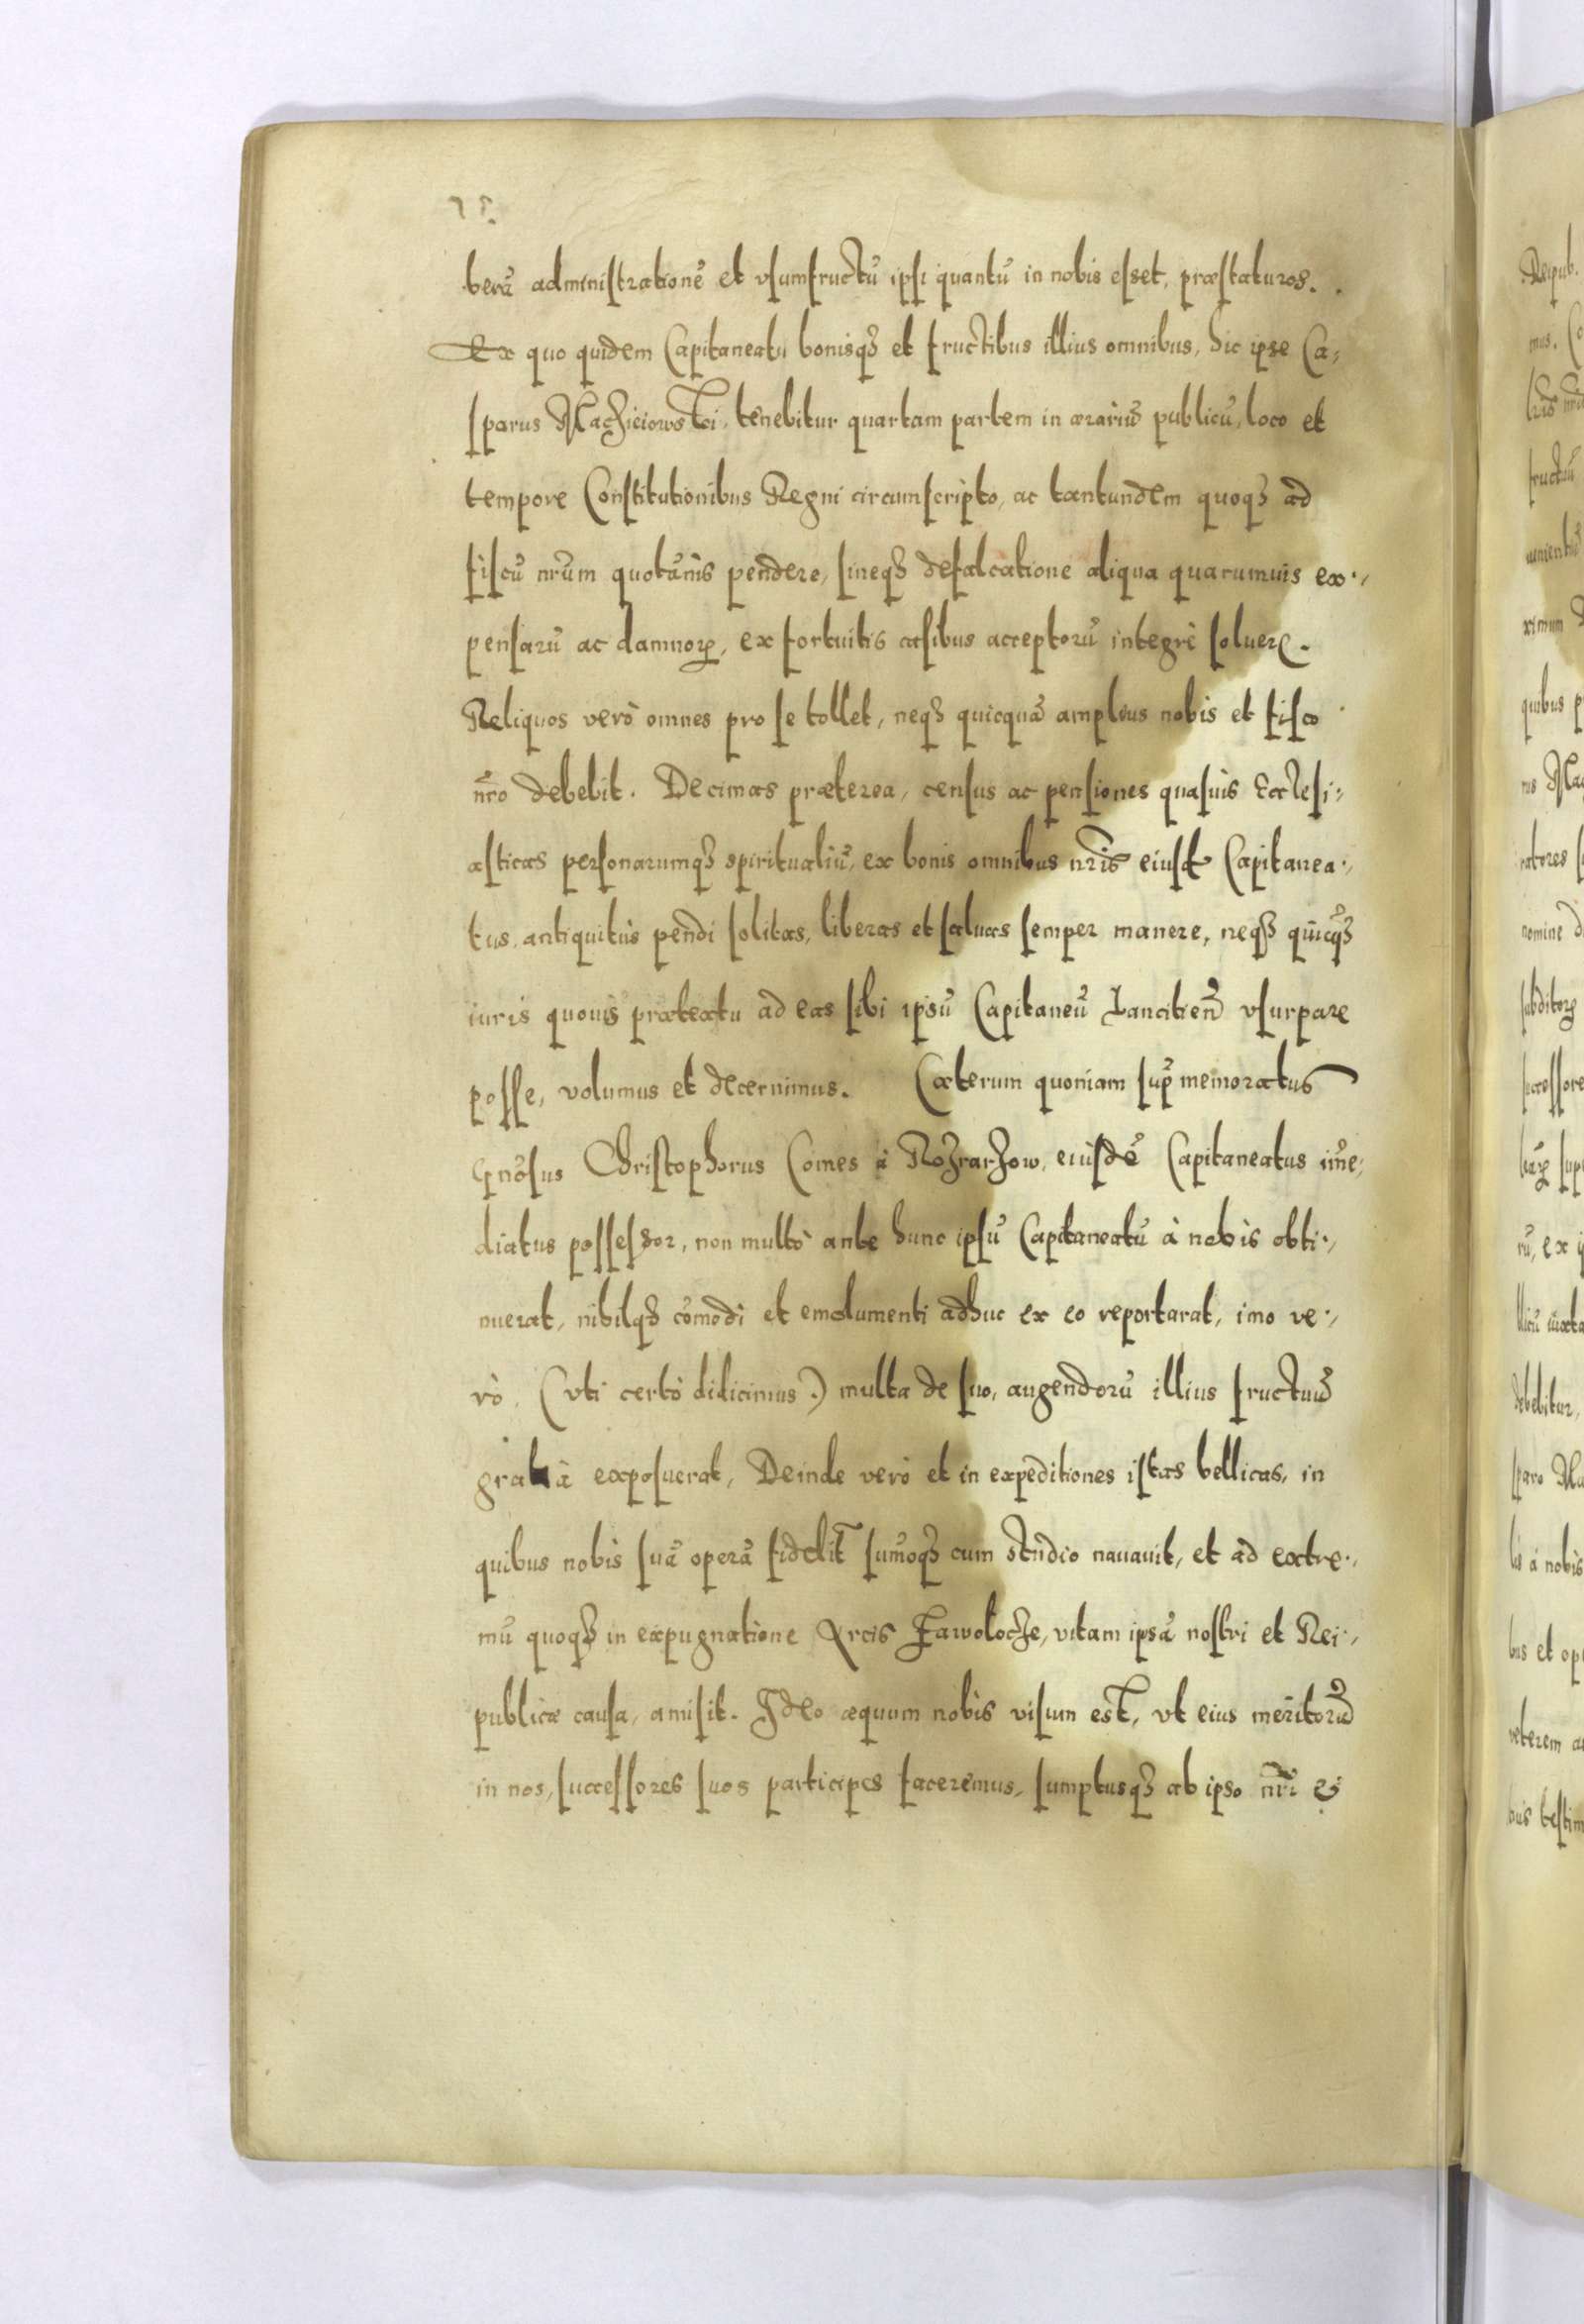 berã administrationẽ et vsumfructũ ipsi quantũ in nobis esset, præstaturos.
Ex quo quidem Capitaneatu bonisqꝫ et fructibus illius omnibus, hic ipse Ca,
sparus Maczieiowski, tenebitur quartam partem in ærariũ publicũ, loco et
tempore Constitutionibus Regni circumscripto, ac tantundem quoqꝫ ad
fiscũ nrũm quotãnis pendere, sineqꝫ defalcatione aliqua quarumuis ex,
pensarũ ac damnorꝝ, ex fortuitis casibus acceptorũ integrè soluere.
Reliquos verò omnes pro se tollet, neqꝫ quicquã amplius nobis et fisco
nrõ debebit. Decimas præterea, census ac pensiones quasuis Ecclesi,
asticas personarumqꝫ spiritualiũ, ex bonis omnibus nrĩs eiusd Capitanea,
tus, antiquitùs pendi solitas, liberas et saluas semper manere, neqꝫ quicqꝫ
iuris quouis prætextu ad eas sibi ipsũ Capitaneũ Lancitieñ vsurpare
posse, volumus et decernimus. Cæterum quoniam sup̃ memoratus
Gnõsus Christophorus Comes à Rozrarzow, eiusdẽ Capitaneatus im̃e,
diatus possessor, non multò ante hunc ipsũ Capitaneatũ à nobis obti,
nuerat, nihilqꝫ cõmodi et emolumenti adhuc ex eo reportarat, imo ve,
rò, (vti certò didicimus) multa de suo, augendorũ illius fructuũ
gratia exposuerat, Deinde verò et in expeditiones istas bellicas, in
quibus nobis suã operã fidelit̃ sum̃oqꝫ cum studio nauauit, et ad extre,
mũ quoqꝫ in expugnatione Arcis Zawolocze, vitam ipsã nostri et Rei,
publicæ causa, amisit. Ideo æquum nobis visum est, vt eius meritorũ
in nos, successores suos participes faceremus, sumptusqꝫ ab ipso nrĩ et